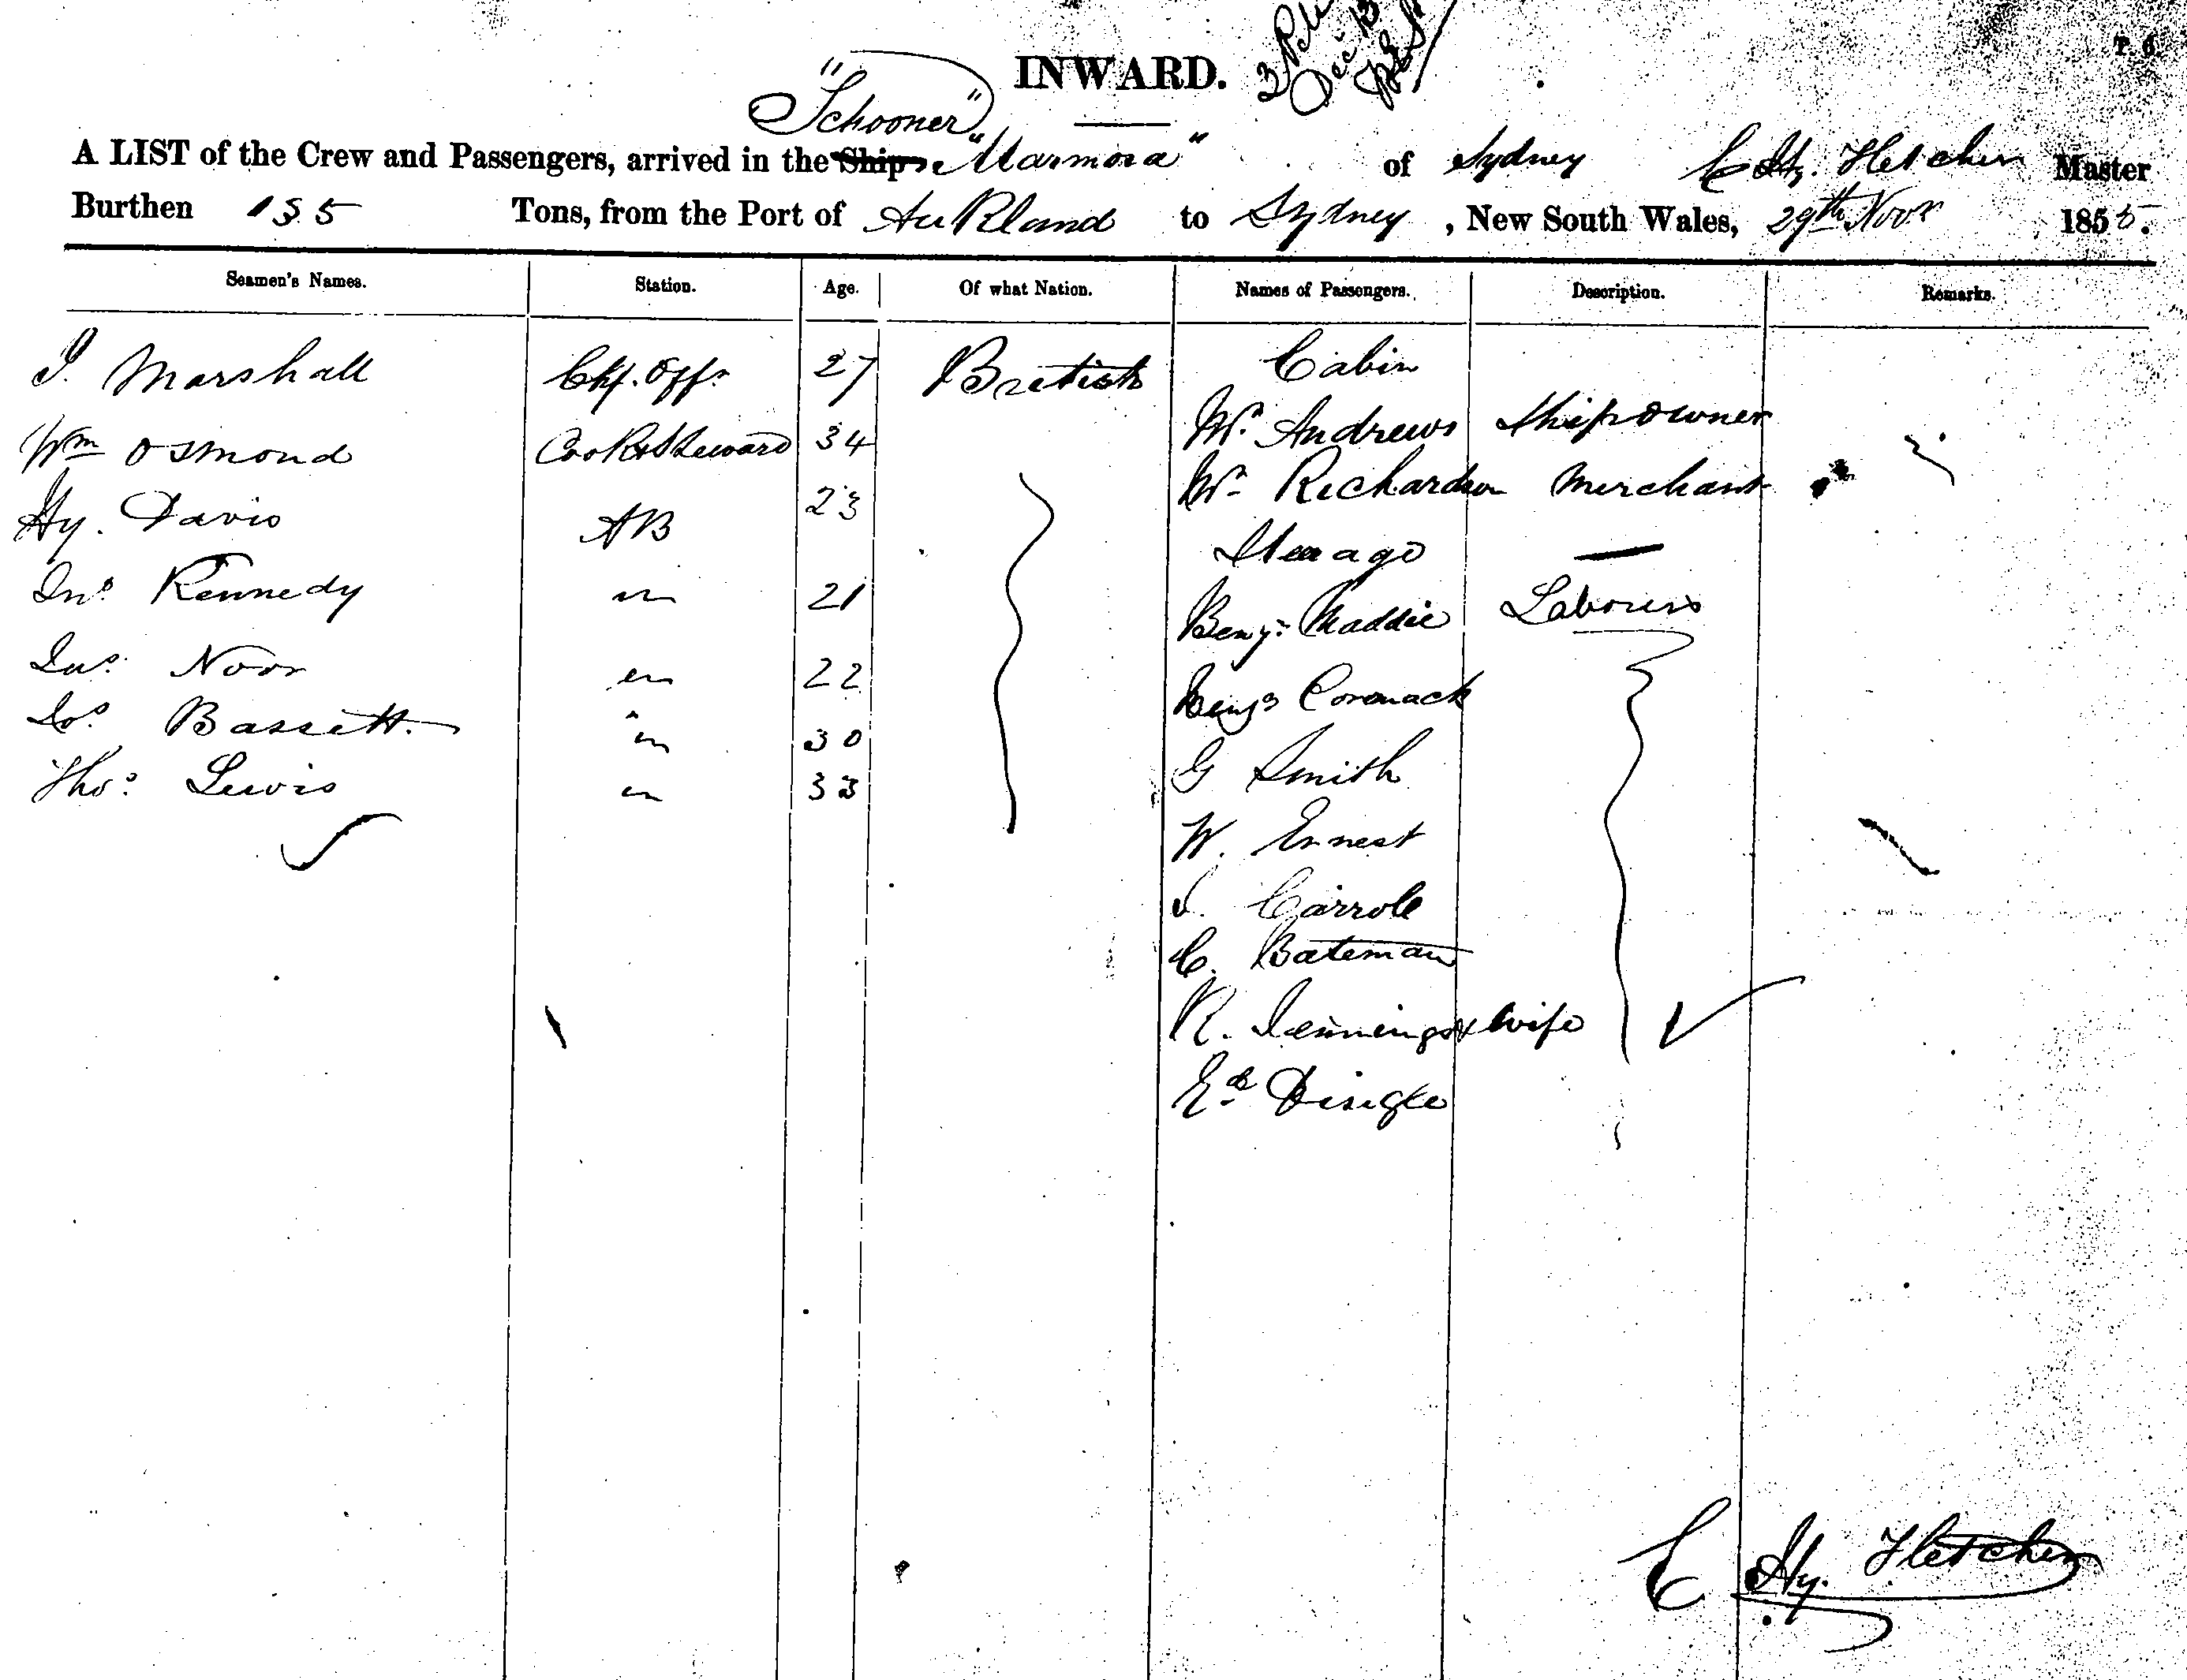 INWARD.
"Schooner"
A LIST of the Crew and Passengers, arrived in the Ship "Marmora" of Sydney C Hy. Fletcher Master
Burthen 135 Tons, from the Port of Aukland to Sydney, New South Wales, 29th Novr 1855.
Seamen's Names. Station. Age. Of what Nation. Names of Passengers. Description. Remarks.
J. Marshall Chf. Offr 27 British Cabin
Mr. Andrews Shipowner
Wm Osmond Cook & Steward 34
Mr Richardson Merchant
Hy. Davis AB 23
Steerage —
Jno. Kennedy " 21
Benj. Maddie Labourers
Jas. Noor " 22
Benj. Cormack
Jos. Bassett. " 30
G Smith
Thos. Lewis " 33
W. Ernest
J. Carroll
C. Bateman
R. Jennings & wife
Ed. Dingle
C Hy. Fletcher